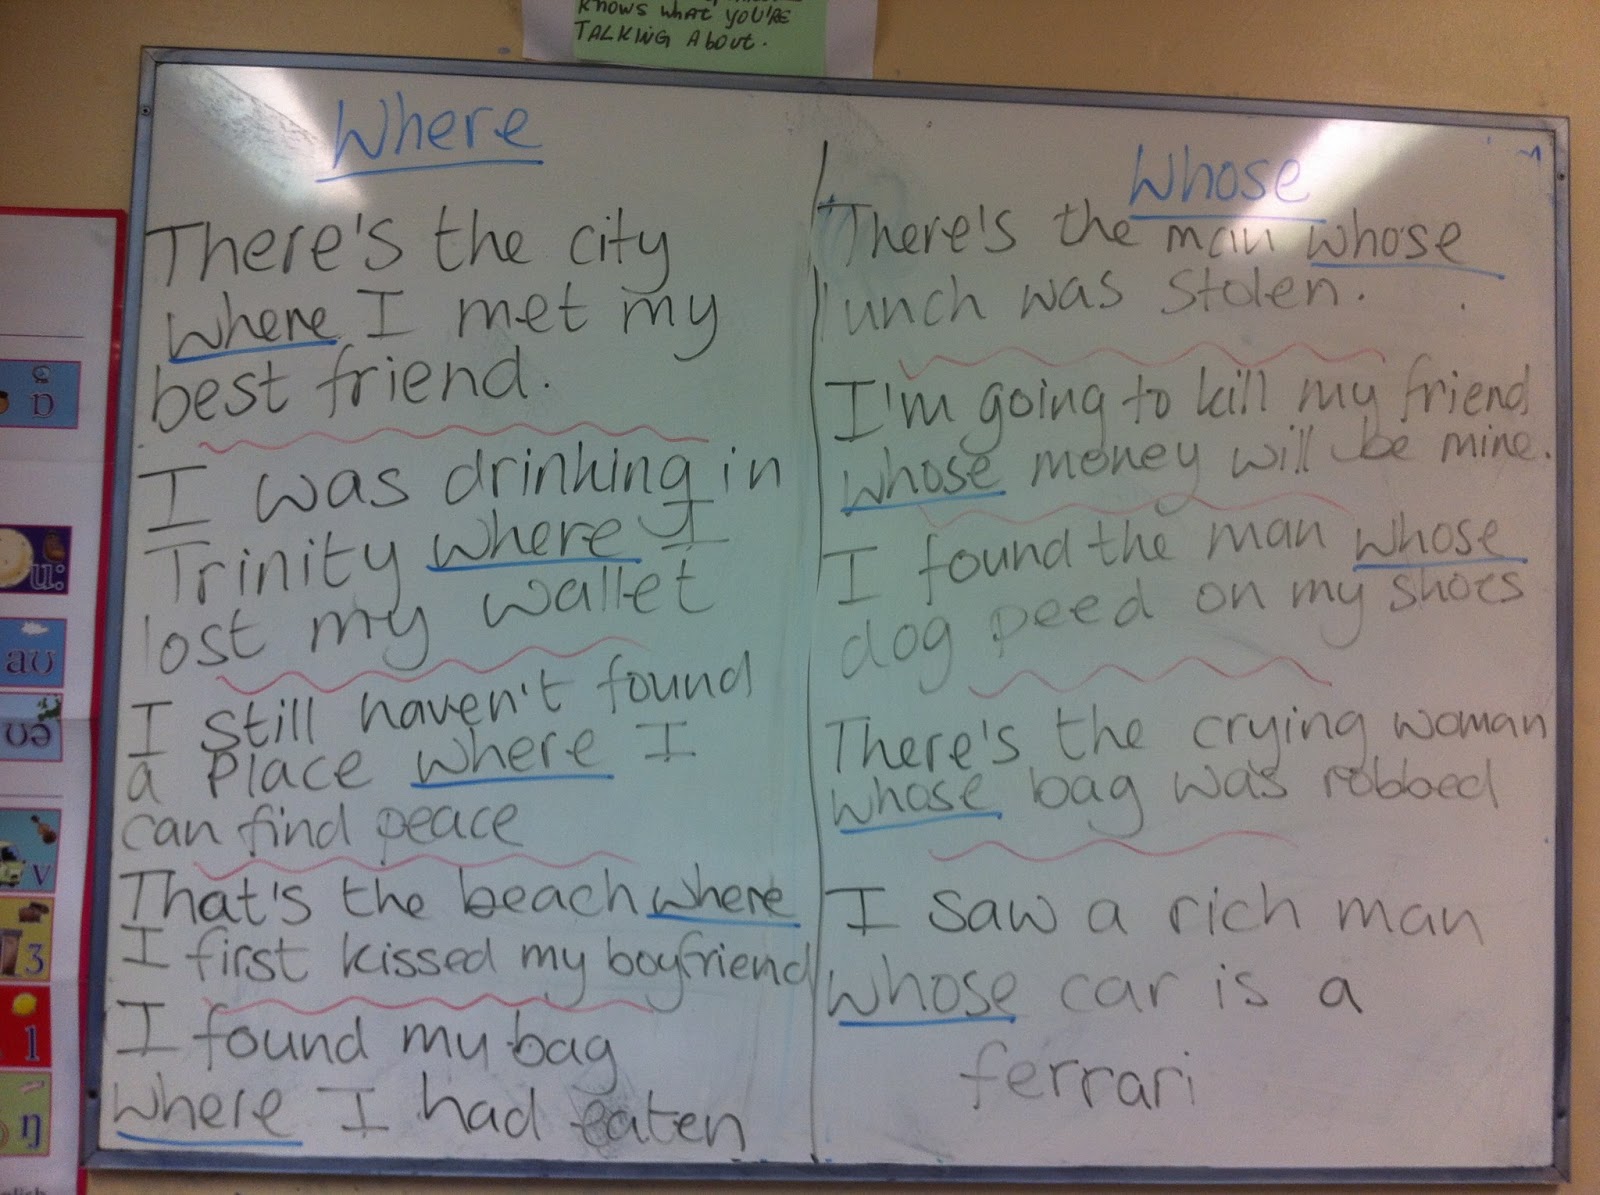 KNOWS WHAT YOU'RE
TALKING About.
Where
There's the city
where I met my
best friend.
I was drinking in
Trinity where I
lost my wallet
I still haven't found
a place where I
can find peace
That's the beach where
I first kissed my boyfriend
I found my bag
where I had eaten
Whose
There's the man whose
lunch was stolen.
I'm going to kill my friend
whose money will be mine.
I found the man whose
dog peed on my shoes
There's the crying woman
whose bag was robbed
I saw a rich man
whose car is a
ferrari
ɒ
u:
aʊ
ʊə
v
ʒ
l
ŋ